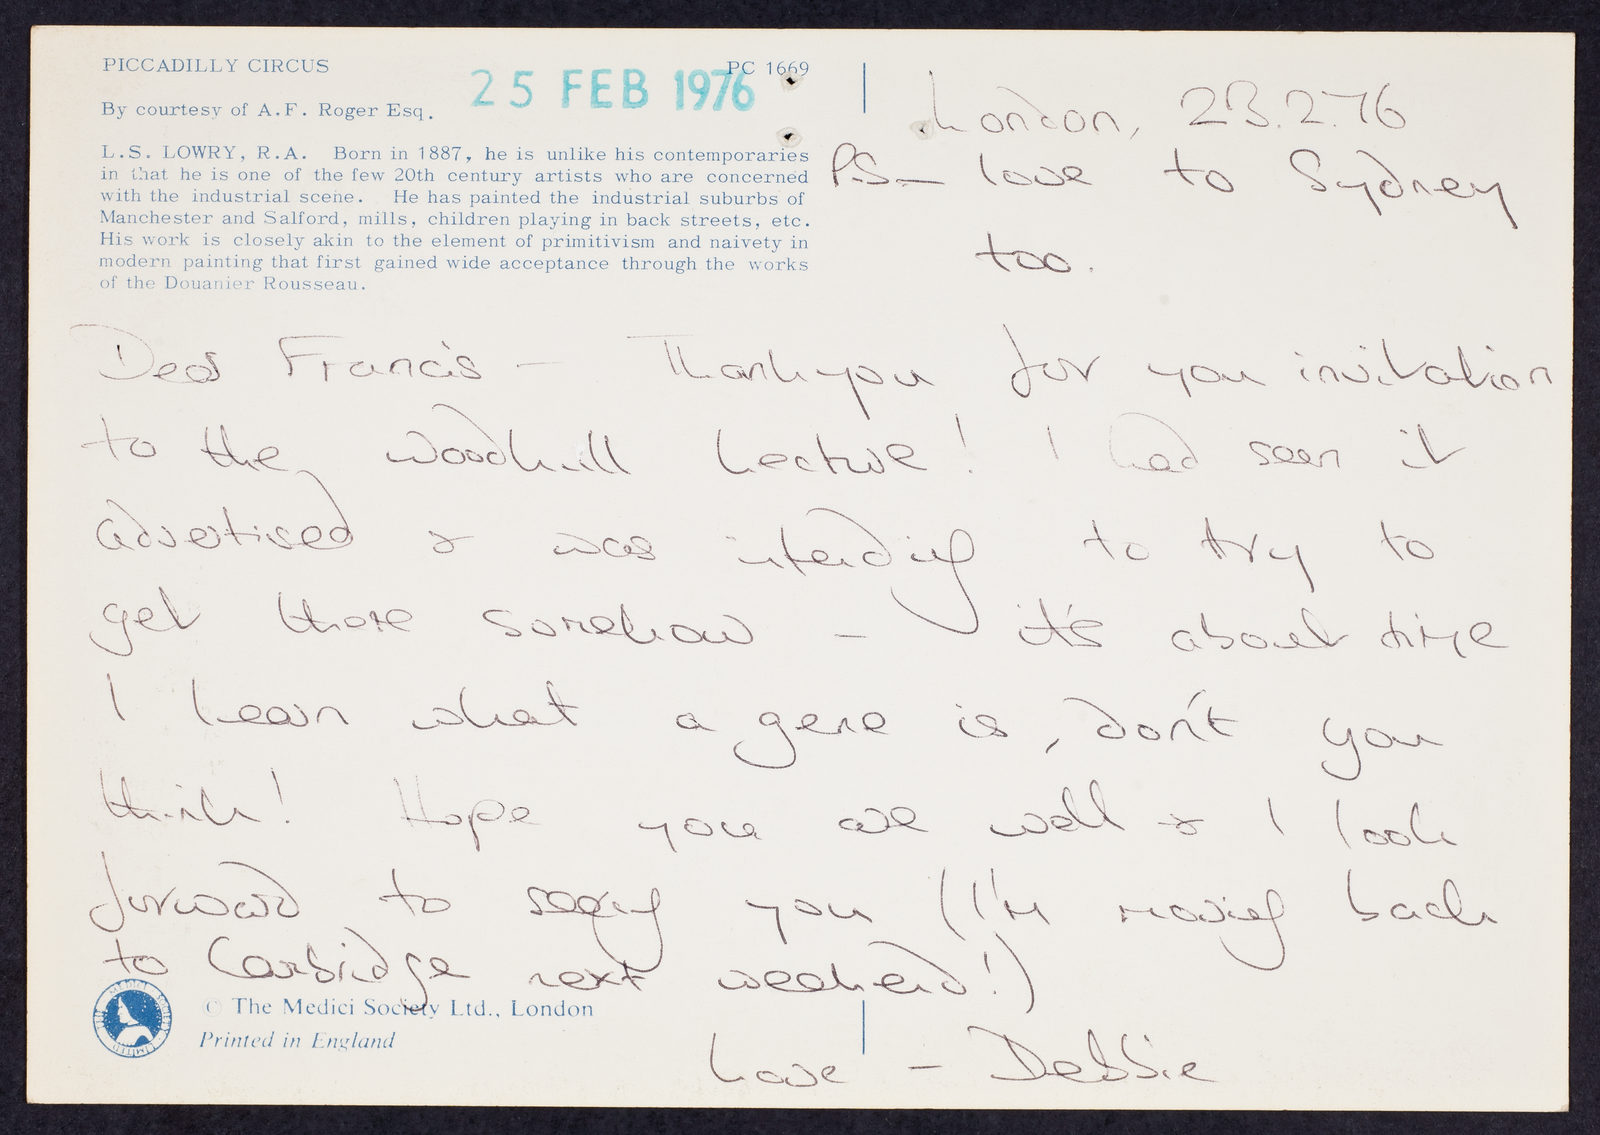 PICCADILLY CIRCUS
PC 1669
25 FEB 1976
By courtesy of A.F. Roger Esq.
L.S. LOWRY, R.A. Born in 1887, he is unlike his contemporaries
in that he is one of the few 20th century artists who are concerned
with the industrial scene. He has painted the industrial suburbs of
Manchester and Salford, mills, children playing in back streets, etc.
His work is closely akin to the element of primitivism and naivety in
modern painting that first gained wide acceptance through the works
of the Douanier Rousseau.
London, 23.2.76
P.S. — love to Sydney
too.
Dear Francis — Thankyou for your invitation
to the Woodhull Lecture! I had seen it
advertised & was intending to try to
get there somehow — it's about time
I learn what a gene is, don't you
think! Hope you are well & I look
forward to seeing you (I'm moving back
to Cambridge next weekend!)
Love — Debbie
© The Medici Society Ltd., London
Printed in England
THE MEDICI SOCIETY LIMITED